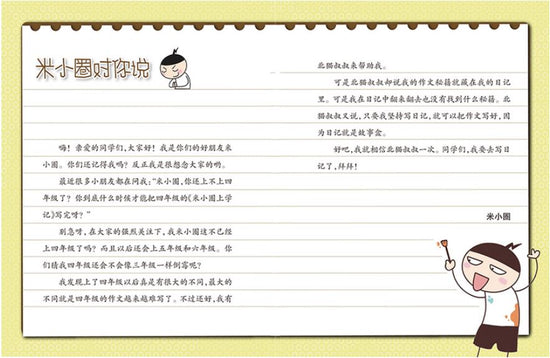 米小圈对你说
嗨！亲爱的同学们，大家好！我是你们的好朋友米
小圈。你们还记得我吗？反正我是很想念大家的哟。
最近很多小朋友都在问我：“米小圈，你还上不上四
年级了？你到底什么时候才能把四年级的《米小圈上学
记》写完呀？”
别急呀，在大家的强烈关注下，我米小圈这不已经
上四年级了吗？而且以后还会上五年级和六年级。你
们猜我四年级还会不会像三年级一样倒霉呢？
我发现上了四年级以后真是有很大的不同，最大的
不同就是四年级的作文越来越难写了。不过还好，我有
北猫叔叔来帮助我。
可是北猫叔叔却说我的作文秘籍就藏在我的日记
里。可是我在日记中翻来翻去也没有找到什么秘籍。北
猫叔叔又说，只要我坚持写日记，就可以把作文写好，因
为日记就是故事盒。
好吧，我就相信北猫叔叔一次。同学们，我要去写日
记了，拜拜！
米小圈